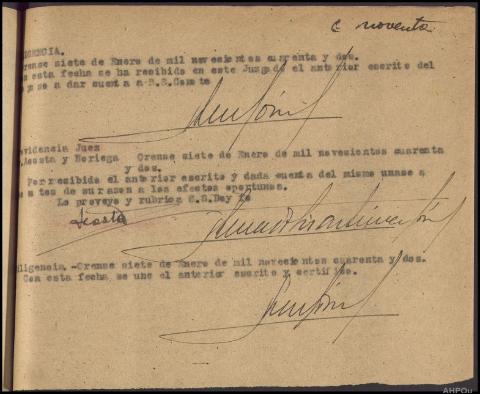 c noventa
IGENCIA.
rense siete de Enero de mil novecientos cuarenta y dos.
esta fecha se ha recibido en este Juzgado el anterior escrito del
paso a dar cuenta a S.S. Conste
videncia Juez
Acosta y Noriega Orense siete de Enero de mil novecientos cuarenta
y dos.
Por recibido el anterior escrito y dada cuenta del mismo unase a
autos de su razon a los efectos oportunos.
Lo proveyo y rubrica S.S. Doy fe
Acosta
ligencia.-Orense siete de Enero de mil novecientos cuarenta y dos.
Con esta fecha se une el anterior escrito y certifico.
AHPOu